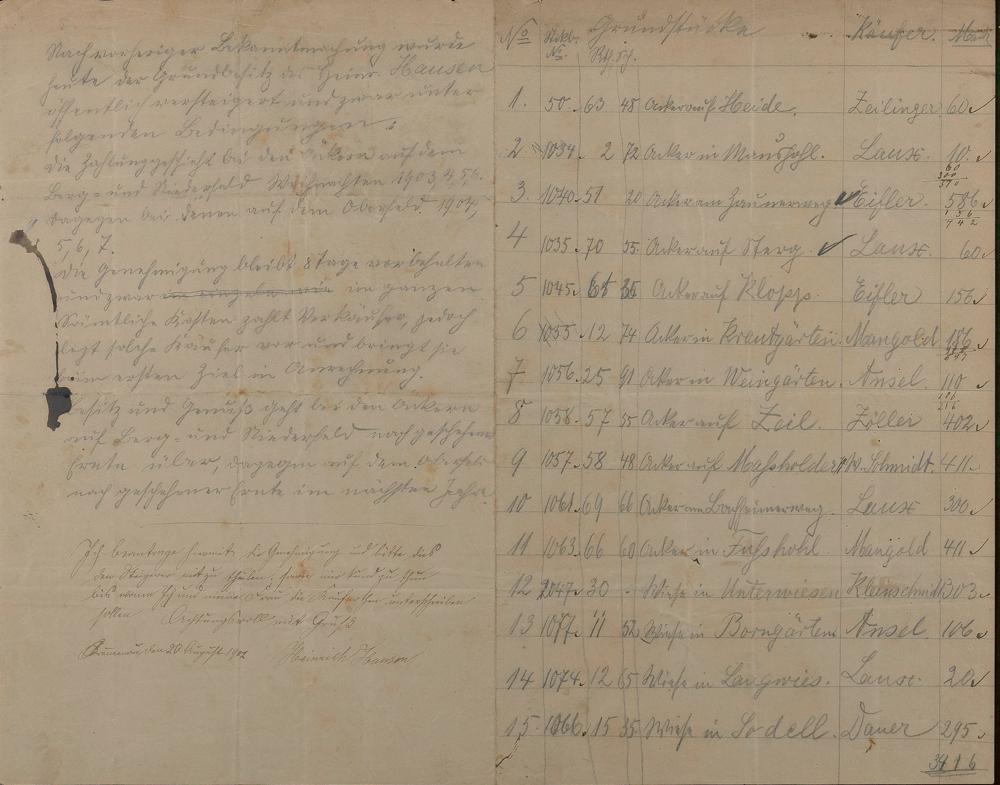 Nach vorheriger Bekanntmachung wurde
heute der Grundbesitz des Heinr. Hansen
öffentlich versteigert und zwar unter
folgenden Bedingungen:
Die Zahlung geschieht bei den Äckern auf dem
Berg- und Niederfeld Weihnachten 1903, 4, 5, 6.
dagegen bei denen auf dem Oberfeld 1904,
5, 6, 7.
Die Genehmigung bleibt 8 Tage vorbehalten
und zwar im ganzen
Sämtliche Kosten zahlt Verkäufer, jedoch
legt solche Käufer vor und bringt sie
beim ersten Ziel in Anrechnung.
Besitz und Genuß geht bei den Äckern
auf Berg- und Niederfeld nach geschehener
Ernte über, dagegen auf dem Oberfeld
nach geschehener Ernte im nächsten Jahre.
Ich beantrage hiermit die Genehmigung und bitte dies
den Steigerer mitzutheilen, sowie mir kund zu thun
bis wann ich und meine Frau die unterschreiben
sollen Achtungsvoll mit Gruß
den 20 August 1902 Heinrich Hansen
No Grundstücke Käufer. Mark
No. Rth. Sch.
1. 50. 63 48 Acker auf Heide. Zeilinger 60
2 1034. 2 72 Acker in Laux. 10.
60
300
370
3. 1040. 51 20 Acker am Zaunerweg Eifler. 586
1 5 6
7 4 2
4 1035. 70 35 Acker auf Sterg. Laux. 60
5 1045. 65 35 Acker auf Klopp. Eifler 156
6 1055. 12 74 Acker in Krautgärten. Mangold 186
7 1056. 25 91 Acker in Weingärten. Ansel. 110
106
216
8 1058. 57 55 Acker auf Zeil. Zöller 402
9 1057. 58 48 Acker auf Maßholder W. Schmidt. 411
10 1061. 69 66 Acker am Laux 300
11 1063. 66 60 Acker in Fußhohl Mangold 411
12 2047. 30 - Wiese in Unterwiesen Kleinschmidt 303
13 1077. 11 52 Wiese in Borngärten Ansel. 106
14 1074. 12 65 Wiese in Langwies. Laux. 20
15. 1066. 15 35. Wiese in Sodell. Dauer 295
3416